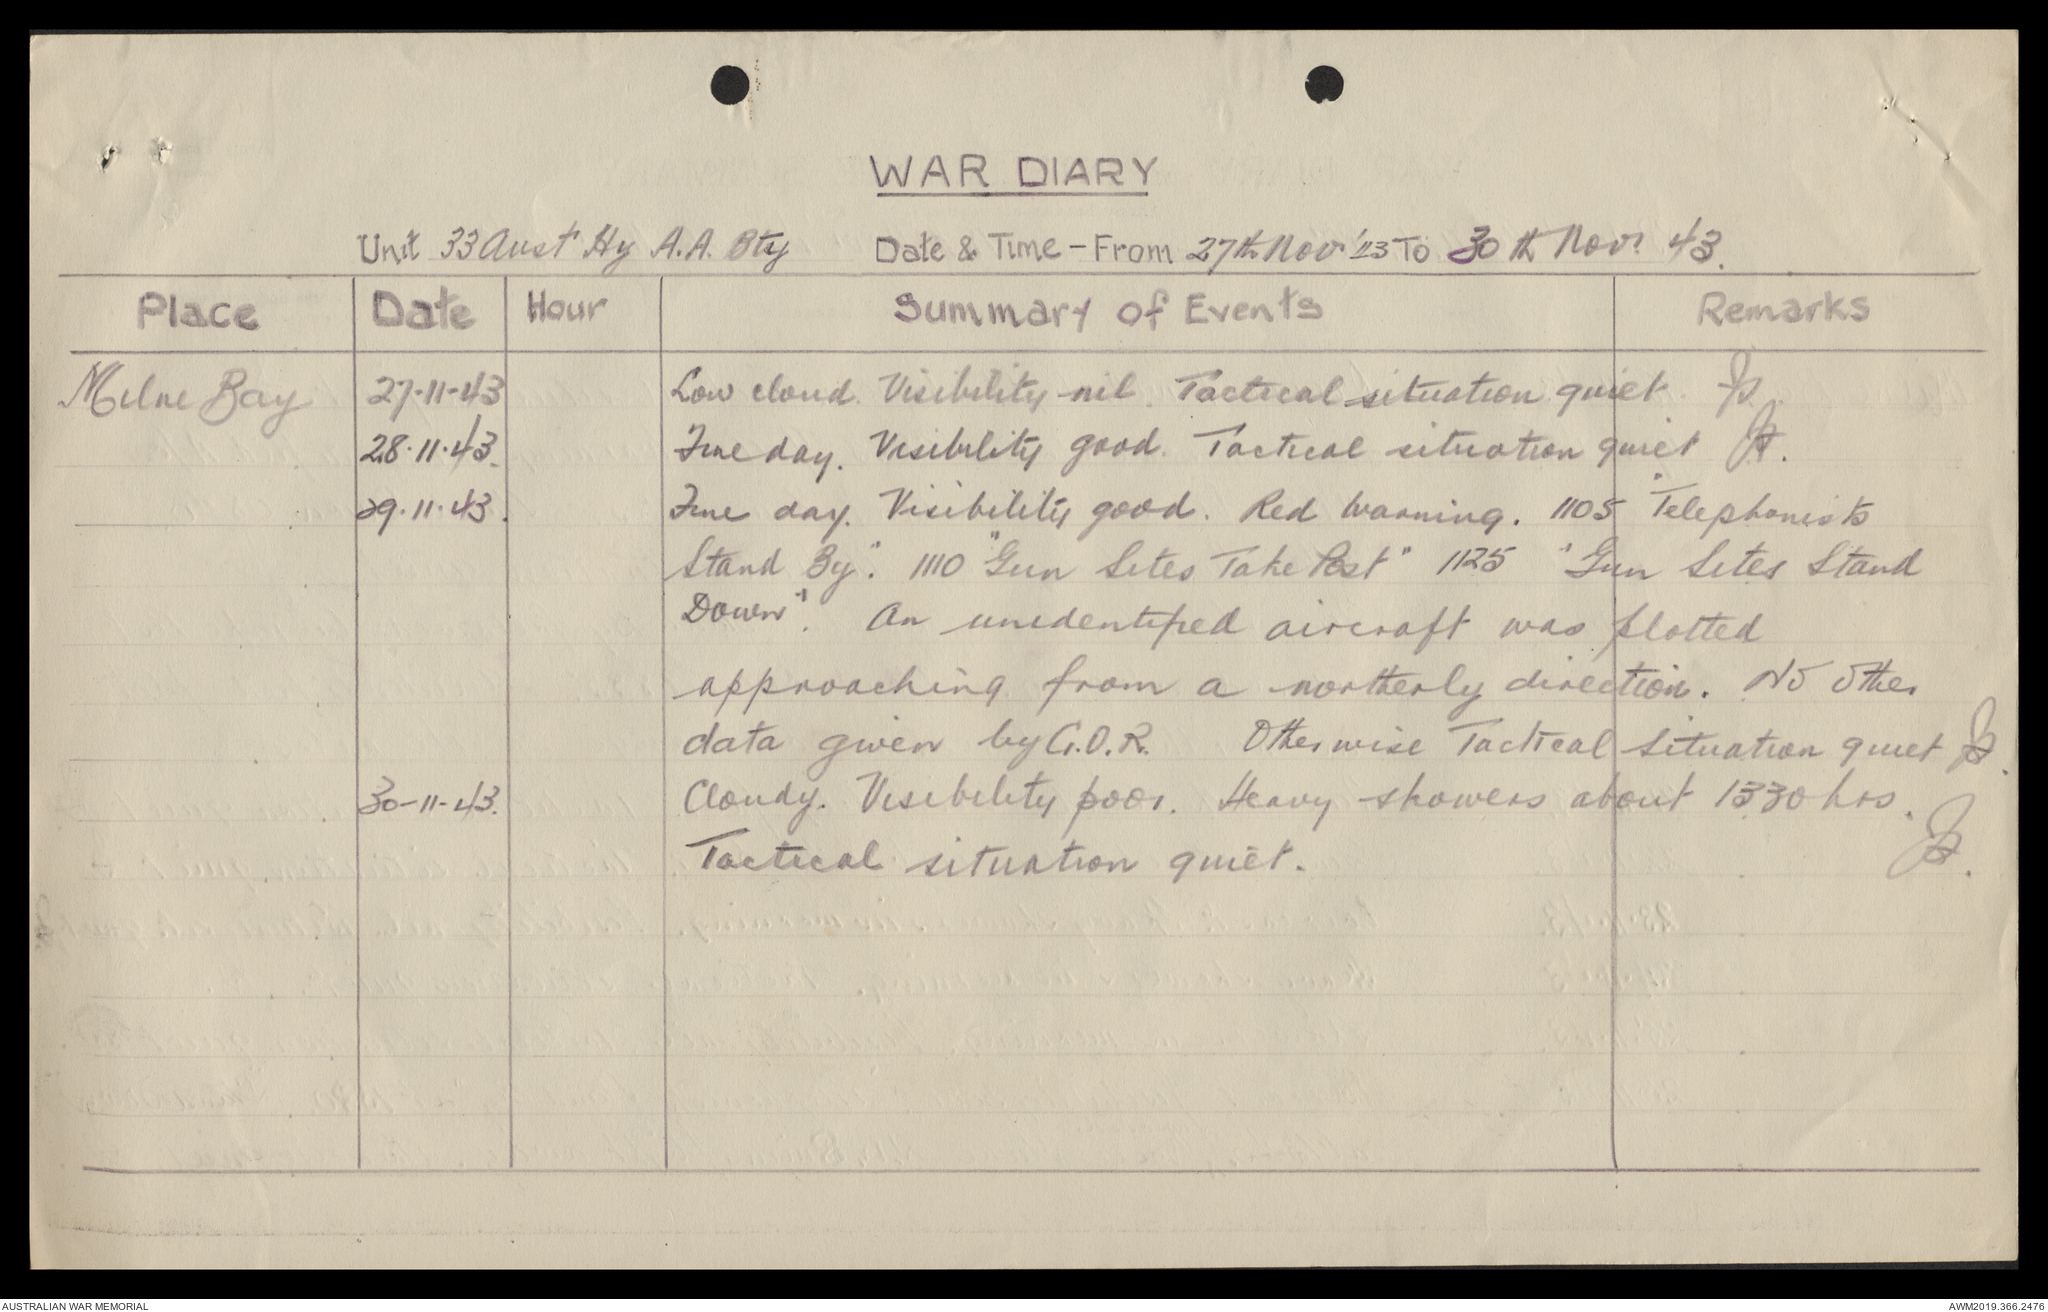 WAR DIARY
Unit 33 Aust Hy A.A. Bty Date & Time - From 27th Nov '43 To 30th Nov. 43.
Place Date Hour Summary of Events Remarks
Milne Bay 27-11-43 Low cloud. Visibility nil. Tactical situation quiet.
28.11.43. Fine day. Visibility good. Tactical situation quiet
29.11.43. Fine day. Visibility good. Red Warning. 1105 "Telephonists
Stand By". 1110 "Gun Sites Take Post" 1125 "Gun Sites Stand
Down". An unidentified aircraft was plotted
approaching from a northerly direction. No other
data given by G.O.R. Otherwise Tactical situation quiet
30-11-43. Cloudy. Visibility poor. Heavy showers about 1330 hrs.
Tactical situation quiet.
AUSTRALIAN WAR MEMORIAL AWM2019.366.2476